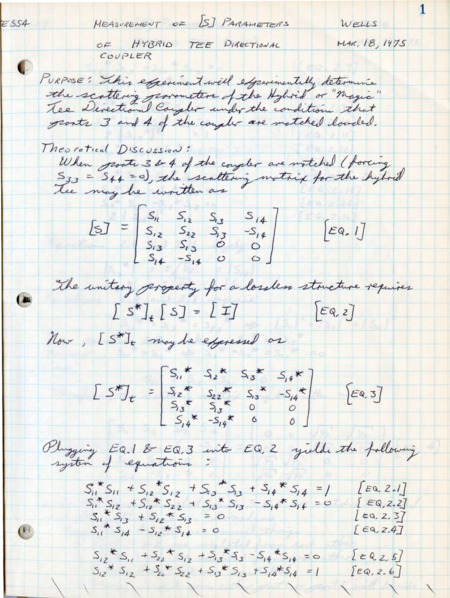 1
E554 MEASUREMENT OF [S] PARAMETERS WELLS
OF HYBRID TEE DIRECTIONAL MAR. 18, 1975
COUPLER
PURPOSE: This experiment will experimentally determine
the scattering parameters of the Hybrid or "Magic"
Tee Directional Coupler under the condition that
ports 3 and 4 of the coupler are matched loaded.
THEORETICAL DISCUSSION:
When ports 3 & 4 of the coupler are matched (forcing
S33 = S44 = 0), the scattering matrix for the hybrid
tee may be written as
[S] = [EQ. 1]
S11 S12 S13 S14
S12 S22 S13 -S14
S13 S13 0 0
S14 -S14 0 0
The unitary property for a lossless structure requires
[S*]t [S] = [I] [EQ. 2]
Now, [S*]t may be expressed as
[S*]t = [EQ. 3]
S11* S12* S13* S14*
S12* S22* S13* -S14*
S13* S13* 0 0
S14* -S14* 0 0
Plugging EQ.1 & EQ.3 into EQ.2 yields the following
system of equations:
S11*S11 + S12*S12 + S13*S13 + S14*S14 = 1 [EQ. 2.1]
S11*S12 + S12*S22 + S13*S13 - S14*S14 = 0 [EQ. 2.2]
S11*S13 + S12*S13 = 0 [EQ. 2.3]
S11*S14 - S12*S14 = 0 [EQ. 2.4]
S12*S11 + S22*S12 + S13*S13 - S14*S14 = 0 [EQ. 2.5]
S12*S12 + S22*S22 + S13*S13 + S14*S14 = 1 [EQ. 2.6]